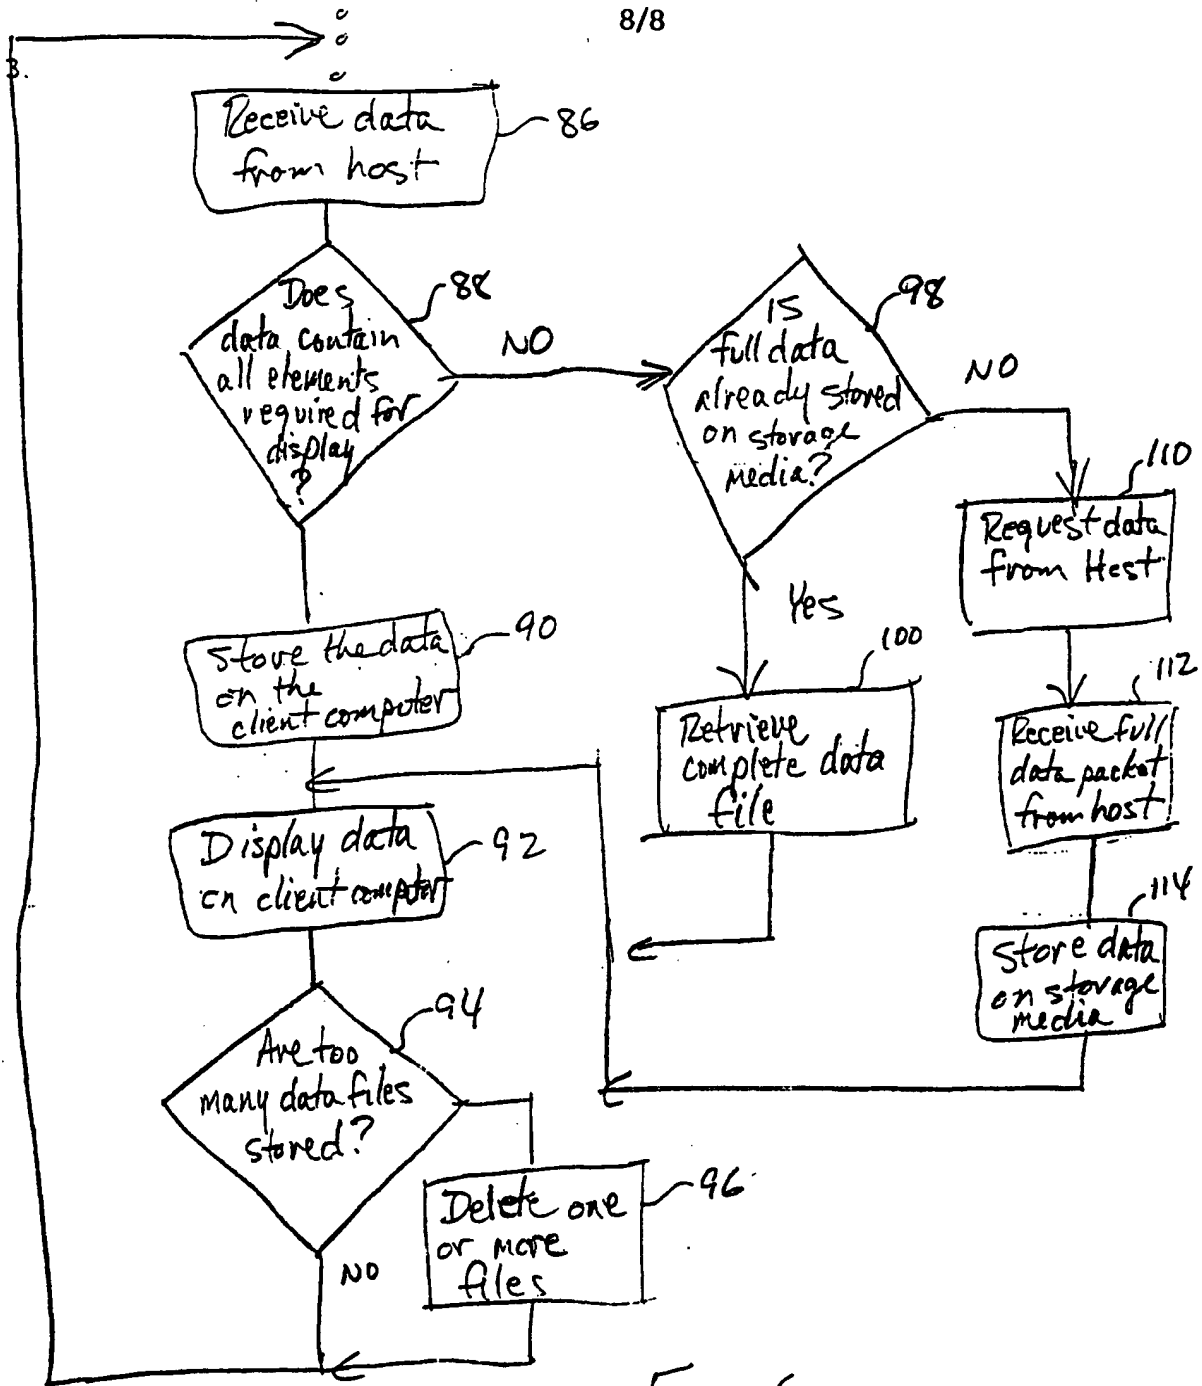 8/8
3.
Receive data
from host
86
Does
data contain
all elements
required for
display
?
88
NO
IS
full data
already stored
on storage
media?
98
NO
Yes
110
Request data
from Host
Store the data
on the
client computer
90
100
Retrieve
complete data
file
112
Receive full
data packet
from host
Display data
on client computer
92
114
Store data
on storage
media
Are too
many data files
stored?
94
NO
Delete one
or more
files
96